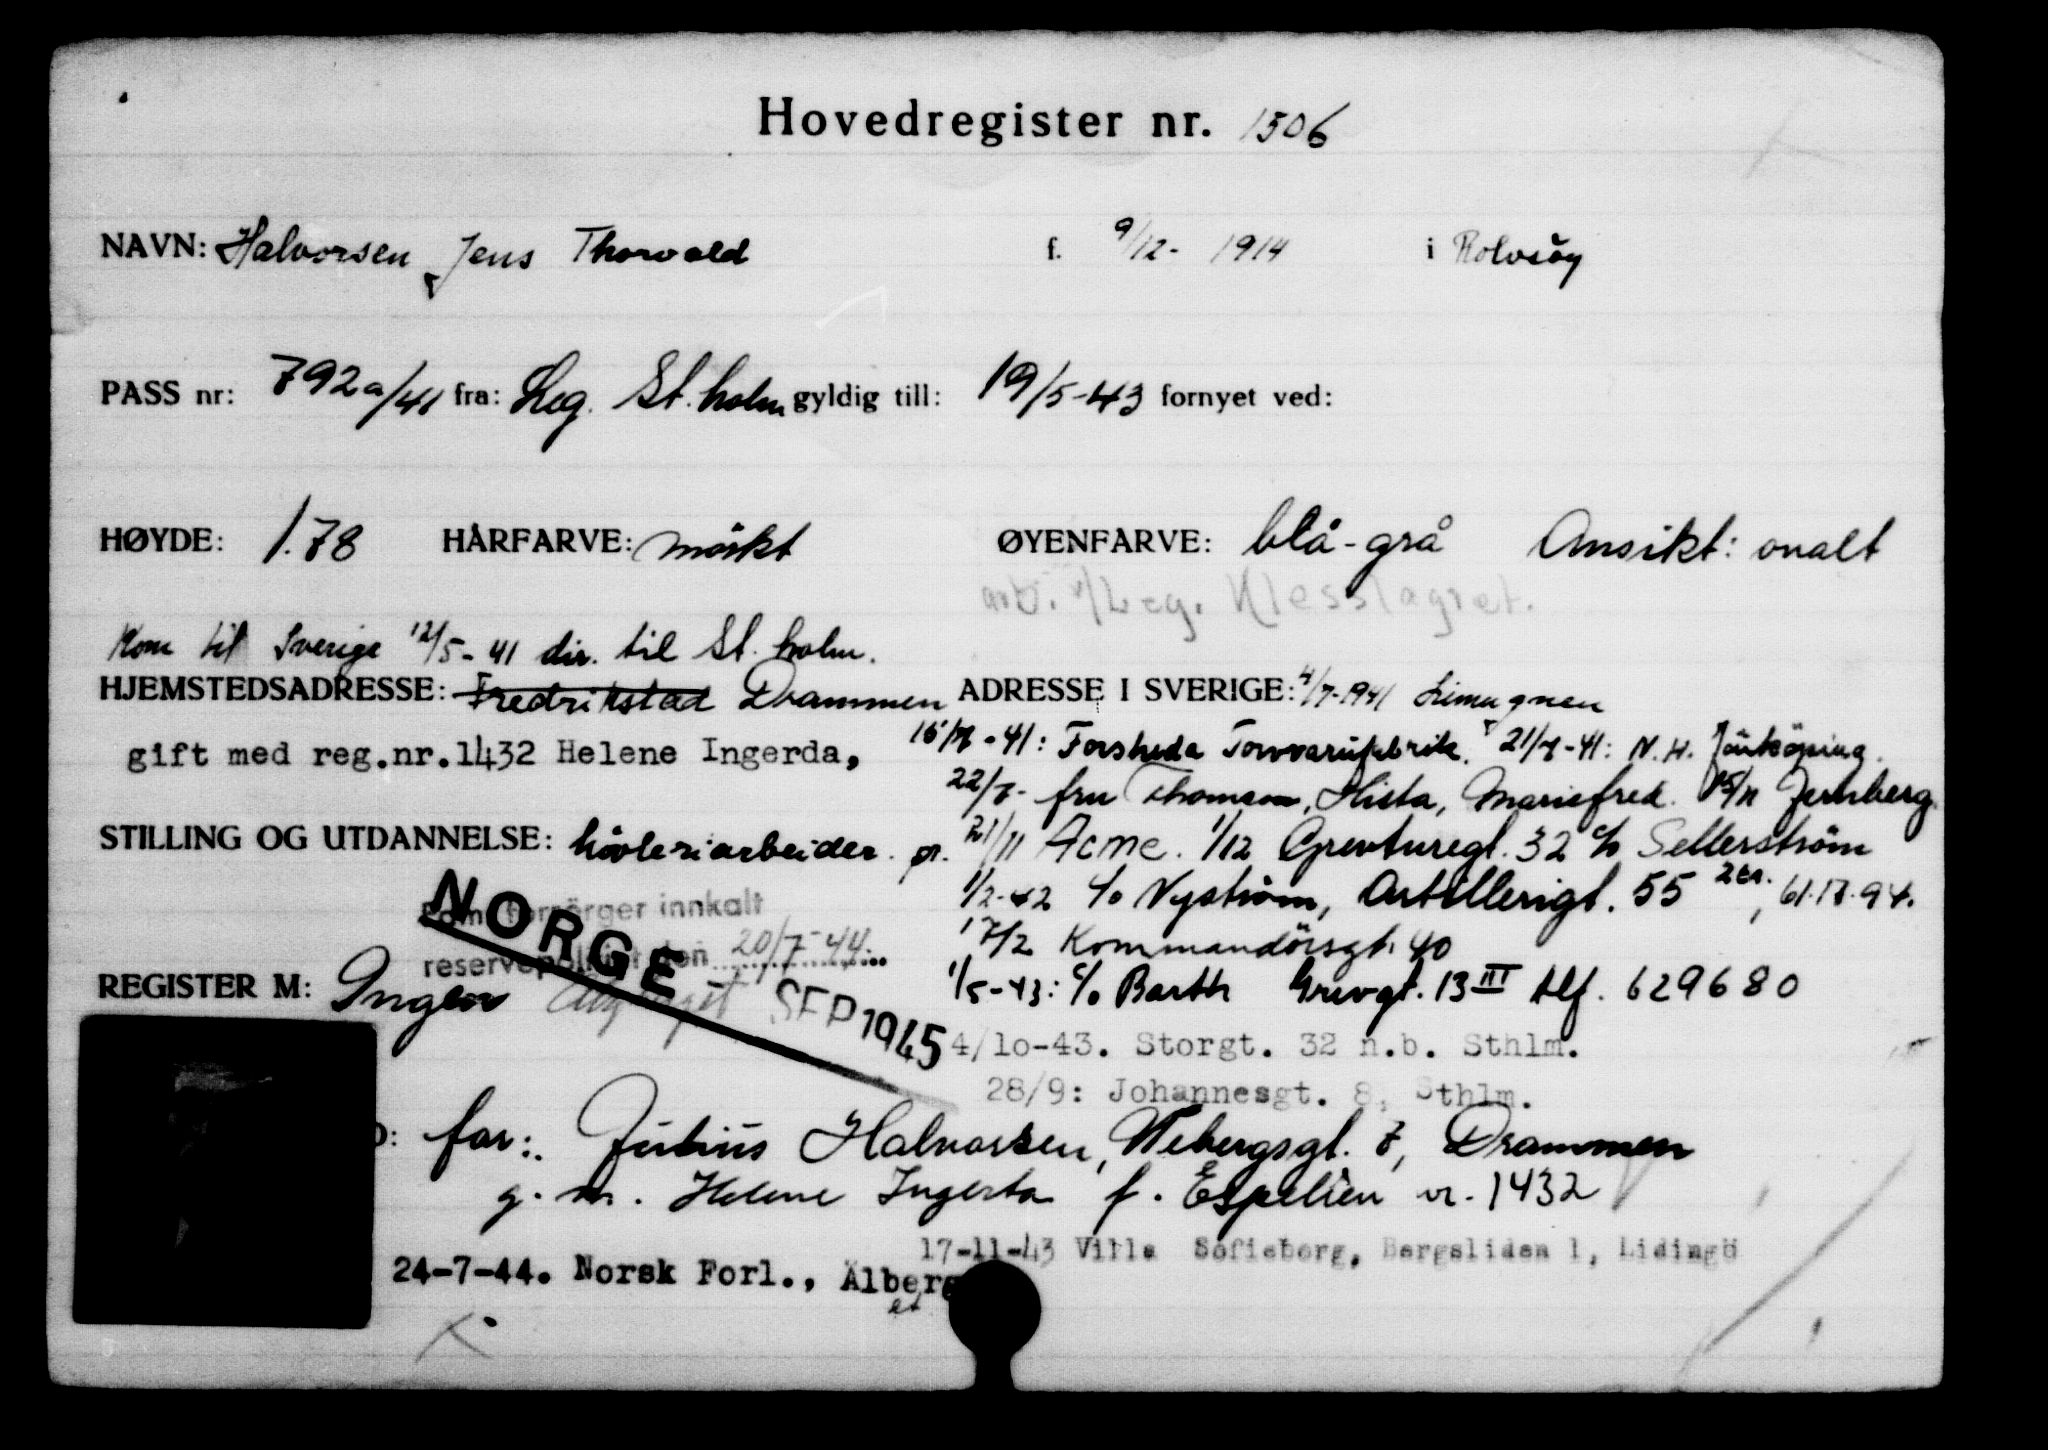 Hovedregister nr. 1506
NAVN: Halvorsen, Jens Thorvald f. 9/12- 1914 i Rolvsöy
PASS nr: 792a/41 fra: Leg. St.holm gyldig till: 19/5-43 fornyet ved:
HØYDE: 1.78 HÅRFARVE: mörkt ØYENFARVE: blå-grå Ansikt: ovalt
arb. v/Leg. Klesslagret.
Kom til Sverige 12/5-41 dir. til St.holm.
HJEMSTEDSADRESSE: Fredrikstad Drammen ADRESSE I SVERIGE: 4/7-1941 Limugnen
gift med reg.nr.1432 Helene Ingerda,
15/7-41: Forsheda Torvvarufabrik. 21/7-41: N.H. Jönköping.
22/7- fru Thomson, Hista, Mariefred. 15/11 Jernberg
STILLING OG UTDANNELSE: hövleriarbeider.
21/11 Acme. 1/12 Grevturegt. 32 c/o Sellerström
1/2-42 c/o Nyström, Artillerigt. 55 2tr., 61.17.94.
17/2 Kommandörsgt. 40
Som forsörger innkalt
reservepoliti den 20/7-44
NORGE
SEP 1945
REGISTER M: Ingen
1/5-43: c/o Barth Grevgt. 13 III tlf. 629680
4/10-43. Storgt. 32 n.b. Sthlm.
28/9: Johannesgt. 8, Sthlm.
D: far: Julius Halvorsen, Webergsgt. 7, Drammen
g. m. Helene Ingerta f. Espelien nr. 1432
17-11-43 Villa Sofieborg, Bergsliden 1, Lidingö
24-7-44. Norsk Forl., Älberg